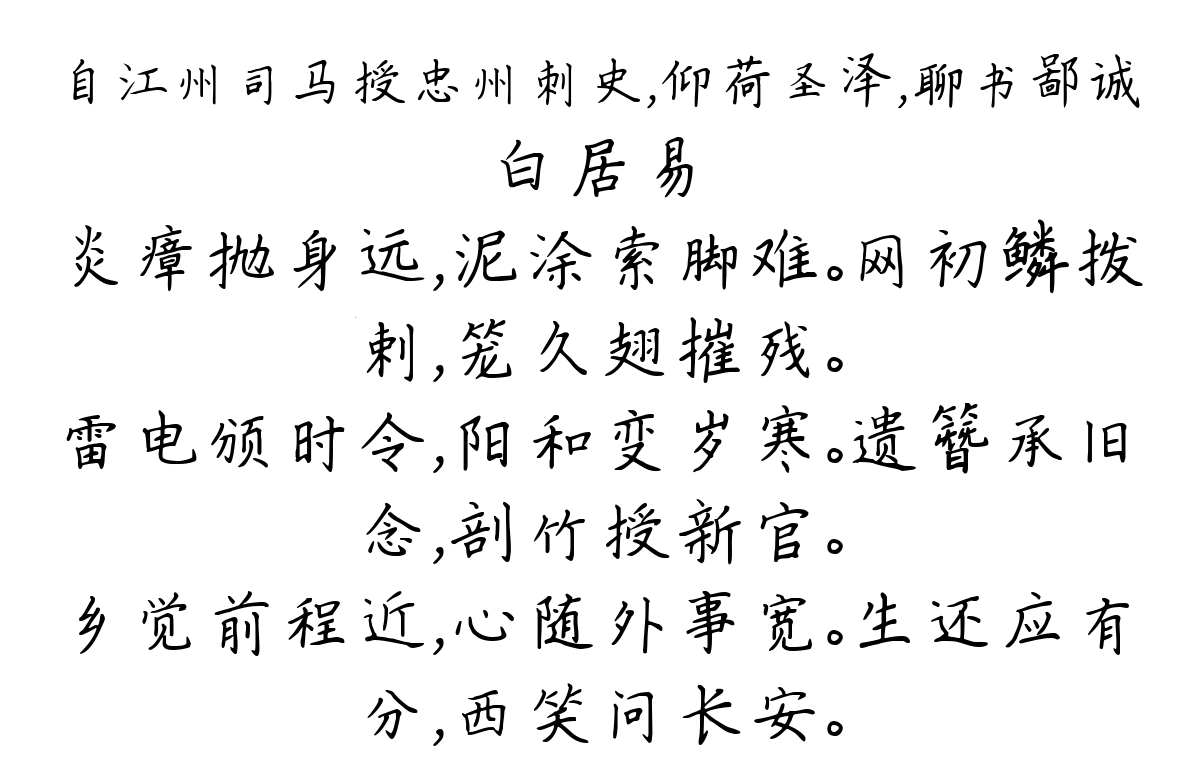 自江州司马授忠州刺史,仰荷圣泽,聊书鄙诚
白居易
炎瘴抛身远,泥涂索脚难。网初鳞拨
剌,笼久翅摧残。
雷电颁时令,阳和变岁寒。遗簪承旧
念,剖竹授新官。
乡觉前程近,心随外事宽。生还应有
分,西笑问长安。